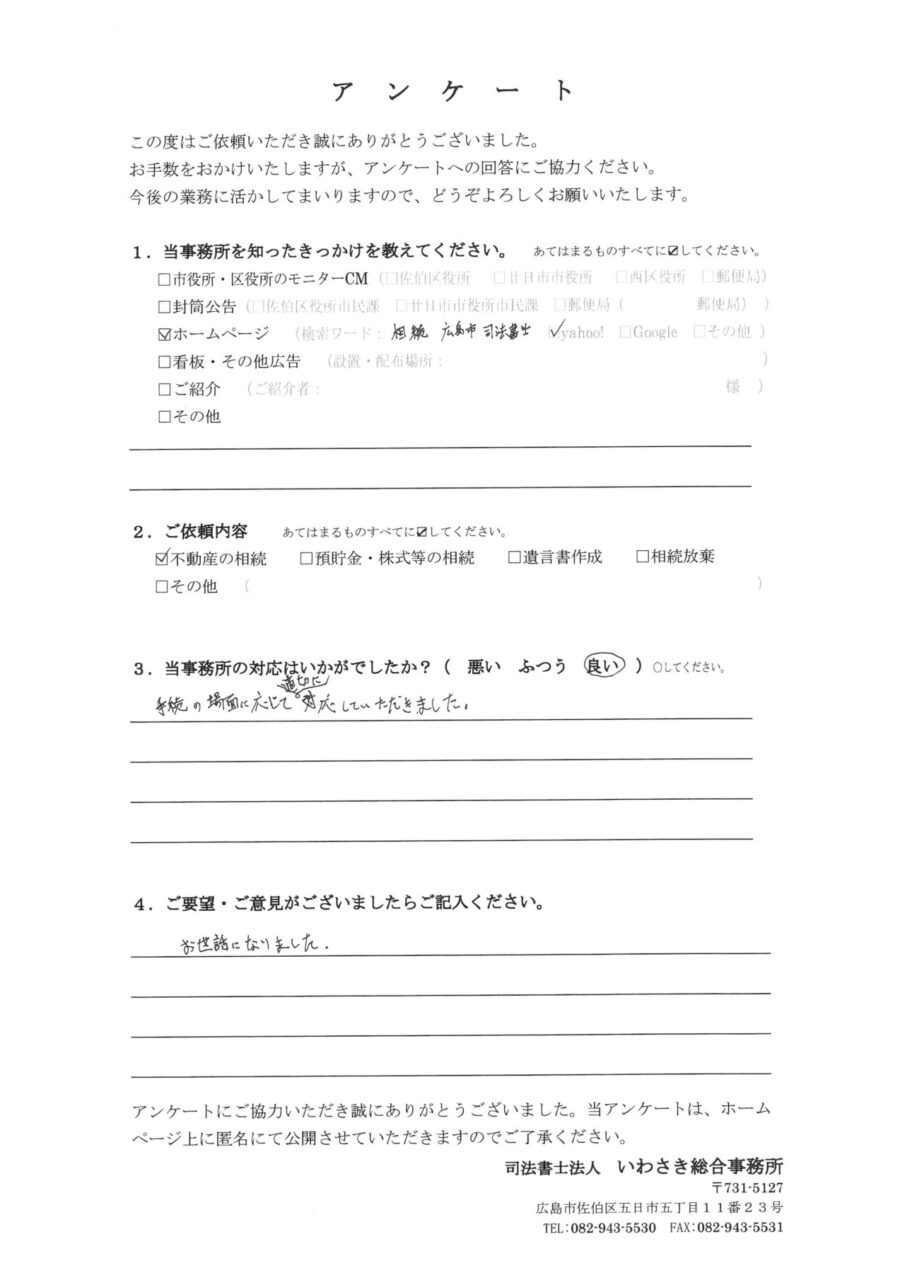 アンケート
この度はご依頼いただき誠にありがとうございました。
お手数をおかけいたしますが、アンケートへの回答にご協力ください。
今後の業務に活かしてまいりますので、どうぞよろしくお願いいたします。
１．当事務所を知ったきっかけを教えてください。 あてはまるものすべてに☑してください。
□市役所・区役所のモニターCM（□佐伯区役所 □廿日市市役所 □西区役所 □郵便局）
□封筒公告（□佐伯区役所市民課 □廿日市市役所市民課 □郵便局（ 郵便局））
☑ホームページ （検索ワード：相続 広島市 司法書士 ☑yahoo! □Google □その他）
□看板・その他広告 （設置・配布場所： ）
□ご紹介 （ご紹介者： 様 ）
□その他
２．ご依頼内容 あてはまるものすべてに☑してください。
☑不動産の相続 □預貯金・株式等の相続 □遺言書作成 □相続放棄
□その他 （ ）
３．当事務所の対応はいかがでしたか？（ 悪い ふつう 良い ）○してください。
手続の場面に応じて適切に対応していただきました。
４．ご要望・ご意見がございましたらご記入ください。
お世話になりました．
アンケートにご協力いただき誠にありがとうございました。当アンケートは、ホーム
ページ上に匿名にて公開させていただきますのでご了承ください。
司法書士法人 いわさき総合事務所
〒731-5127
広島市佐伯区五日市五丁目１１番２３号
TEL：082-943-5530 FAX：082-943-5531